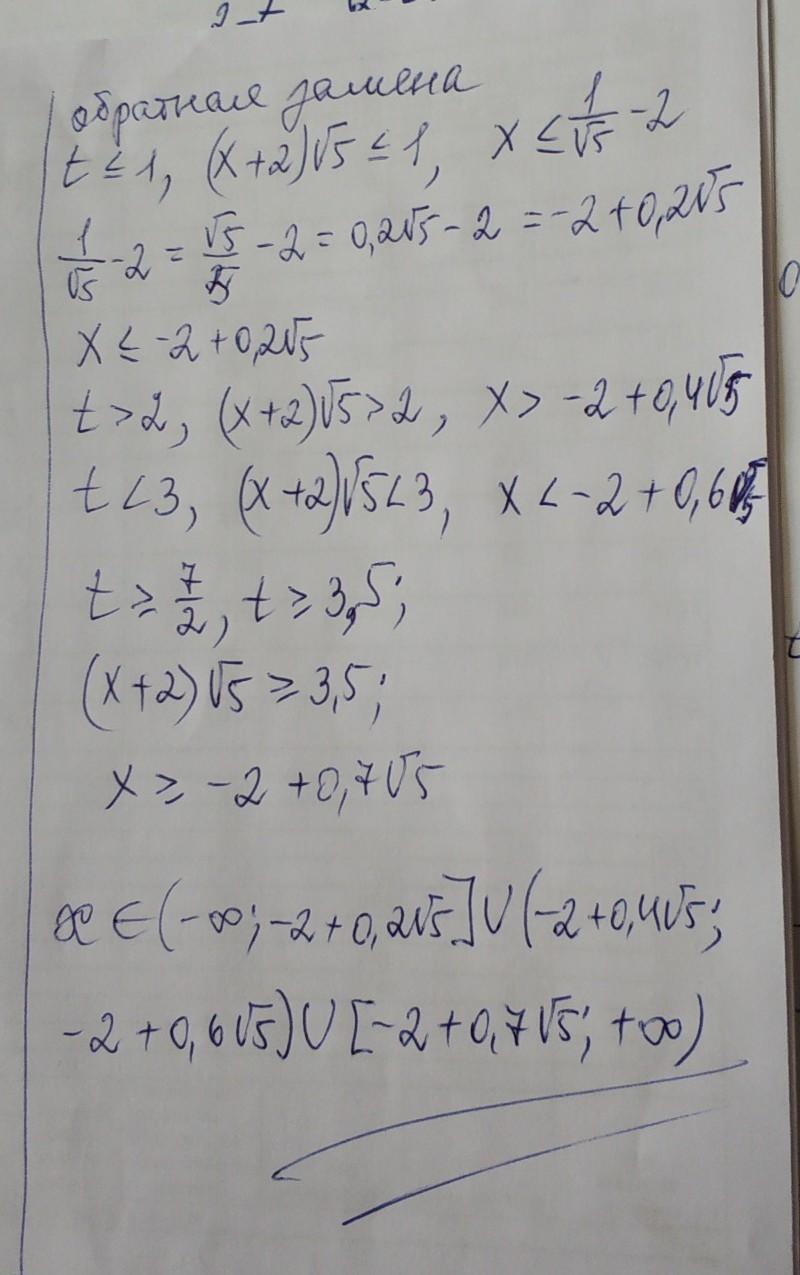 обратная замена
t ≤ 1, (x+2)√5 ≤ 1, x ≤ 1/√5 - 2
1/√5 - 2 = √5/5 - 2 = 0,2√5 - 2 = -2 + 0,2√5
x ≤ -2 + 0,2√5
t > 2, (x+2)√5 > 2, x > -2 + 0,4√5
t < 3, (x+2)√5 < 3, x < -2 + 0,6√5
t ≥ 7/2, t ≥ 3,5;
(x+2)√5 ≥ 3,5;
x ≥ -2 + 0,7√5
x ∈ (-∞; -2 + 0,2√5] ∪ (-2 + 0,4√5;
-2 + 0,6√5) ∪ [-2 + 0,7√5; +∞)